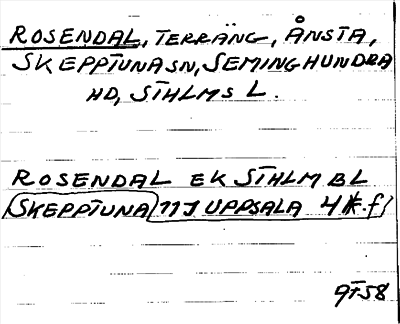 ROSENDAL, TERRÄNG, ÅNSTA,
SKEPPTUNA SN, SEMINGHUNDRA
HD, STHLMS L.
ROSENDAL EK STHLM BL
SKEPPTUNA 11J UPPSALA 4 f